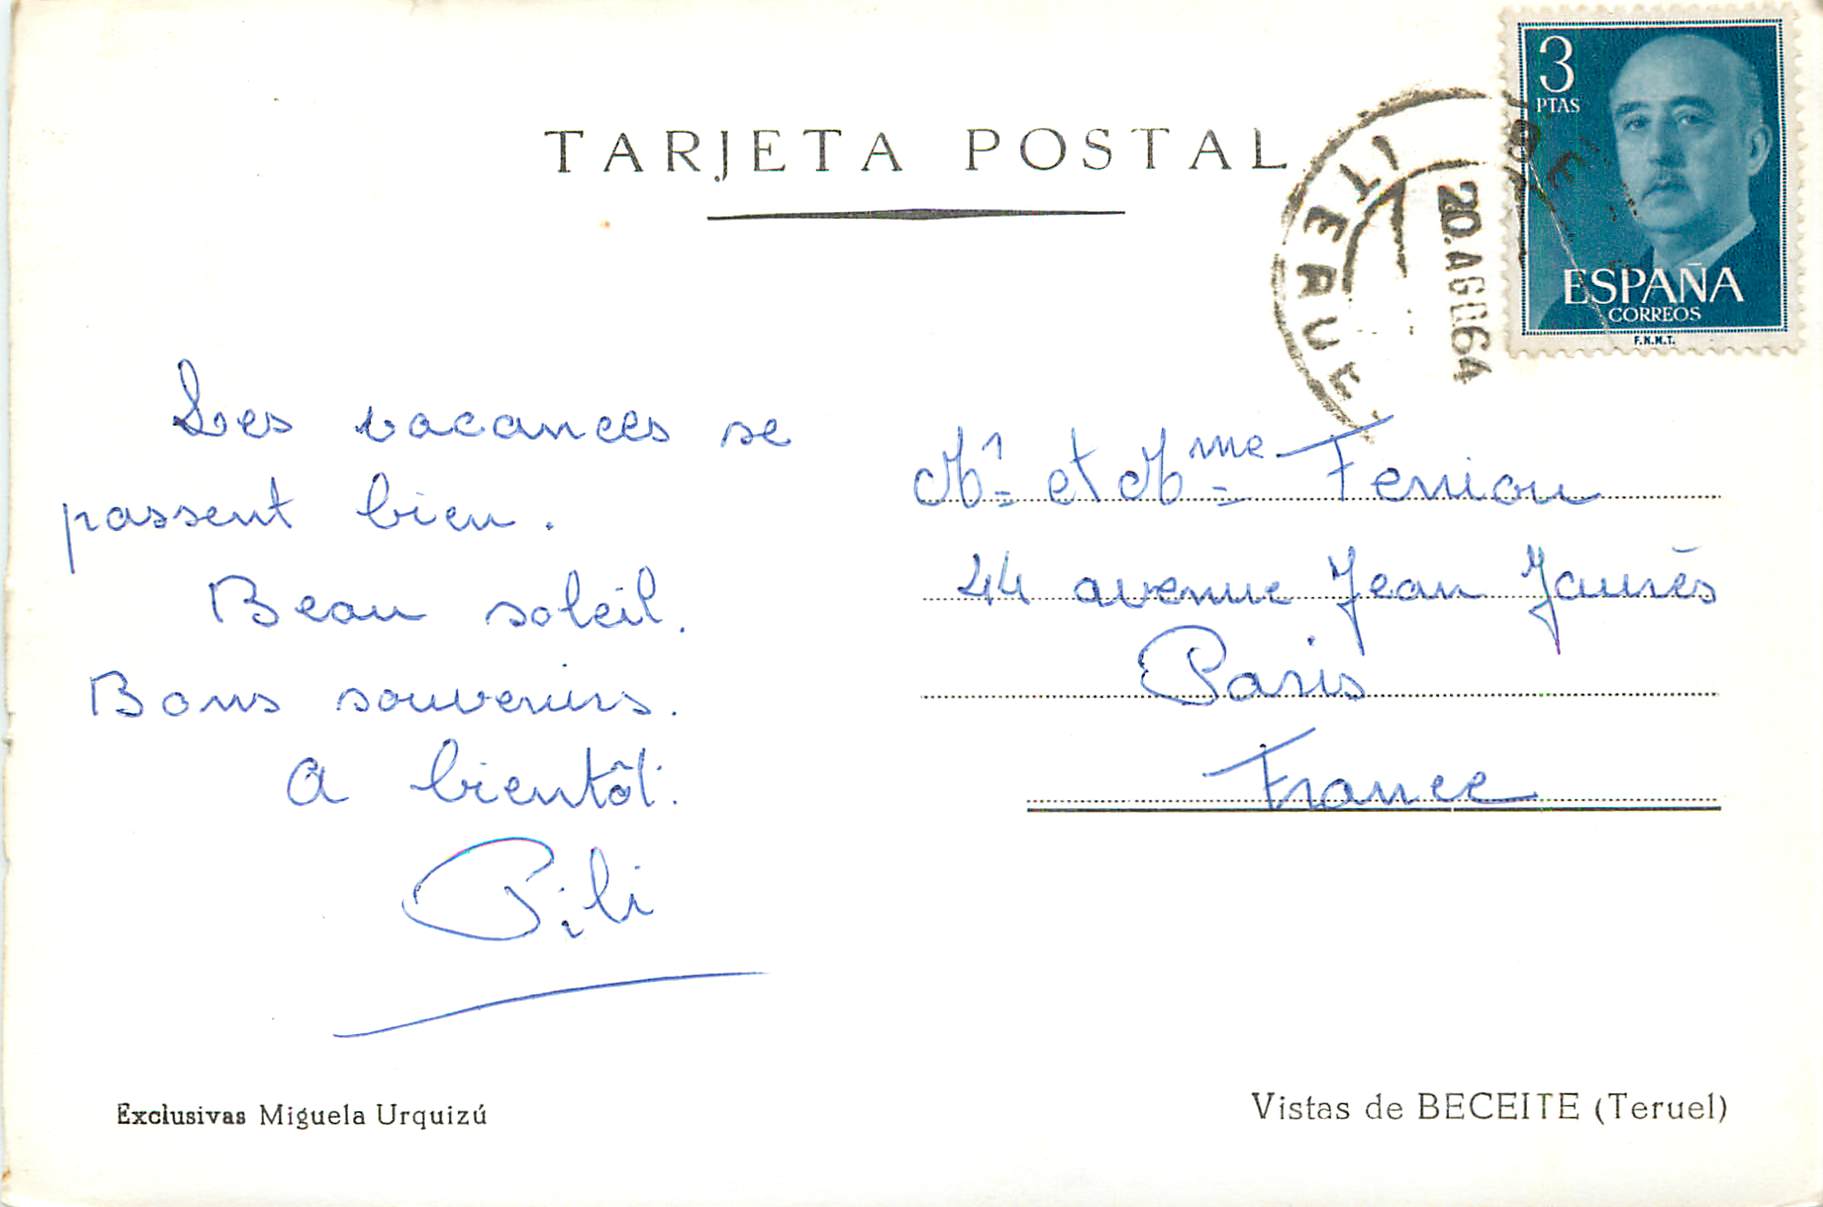 TARJETA POSTAL
3
PTAS
ESPAÑA
CORREOS
F.N.M.T.
20.AGO64
Les vacances se
passent bien.
Beau soleil.
Bons souvenirs.
A bientôt.
Pili
Mr et Mme Feniou
44 avenue Jean Jaurès
Paris
France
Exclusivas Miguela Urquizú
Vistas de BECEITE (Teruel)